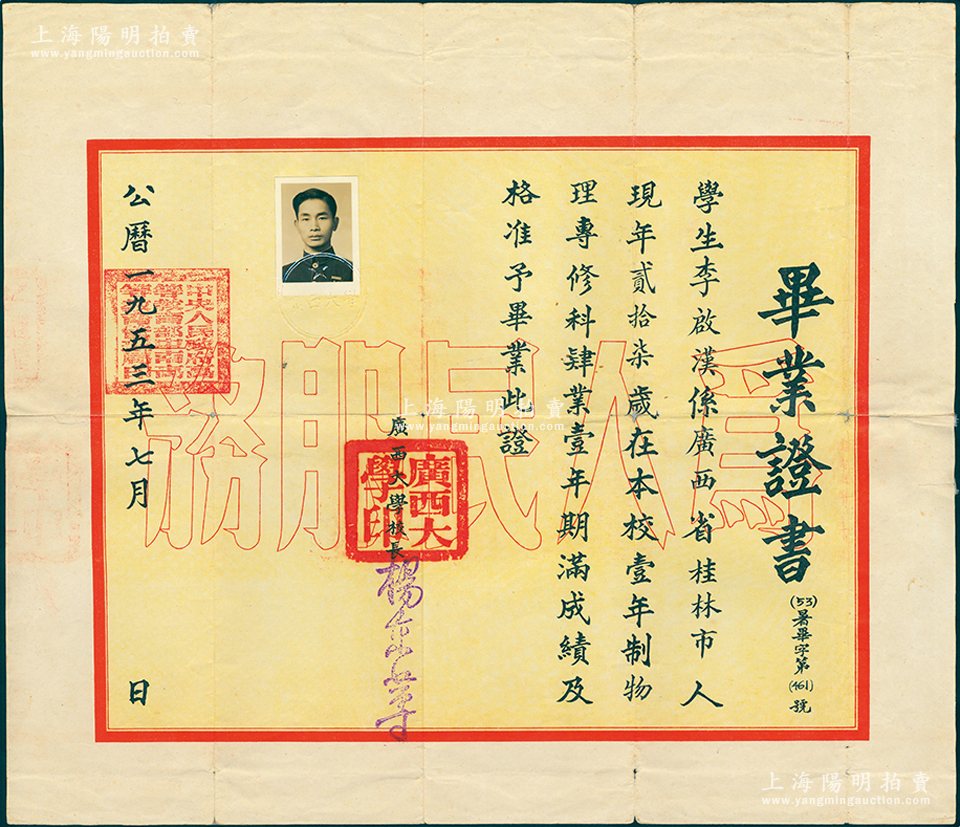 上海陽明拍賣
www.yangmingauction.com
畢業證書
(53)暑畢字第(461)號
學生李啟漢係廣西省桂林市人
現年貳拾柒歲在本校壹年制物
理專修科肄業壹年期滿成績及
格准予畢業此證
廣西大學校長
廣西大學印
公曆一九五三年七月 日
為人民服務
上海陽明拍賣
www.yangmingauction.com
上海陽明拍賣
www.yangmingauction.com